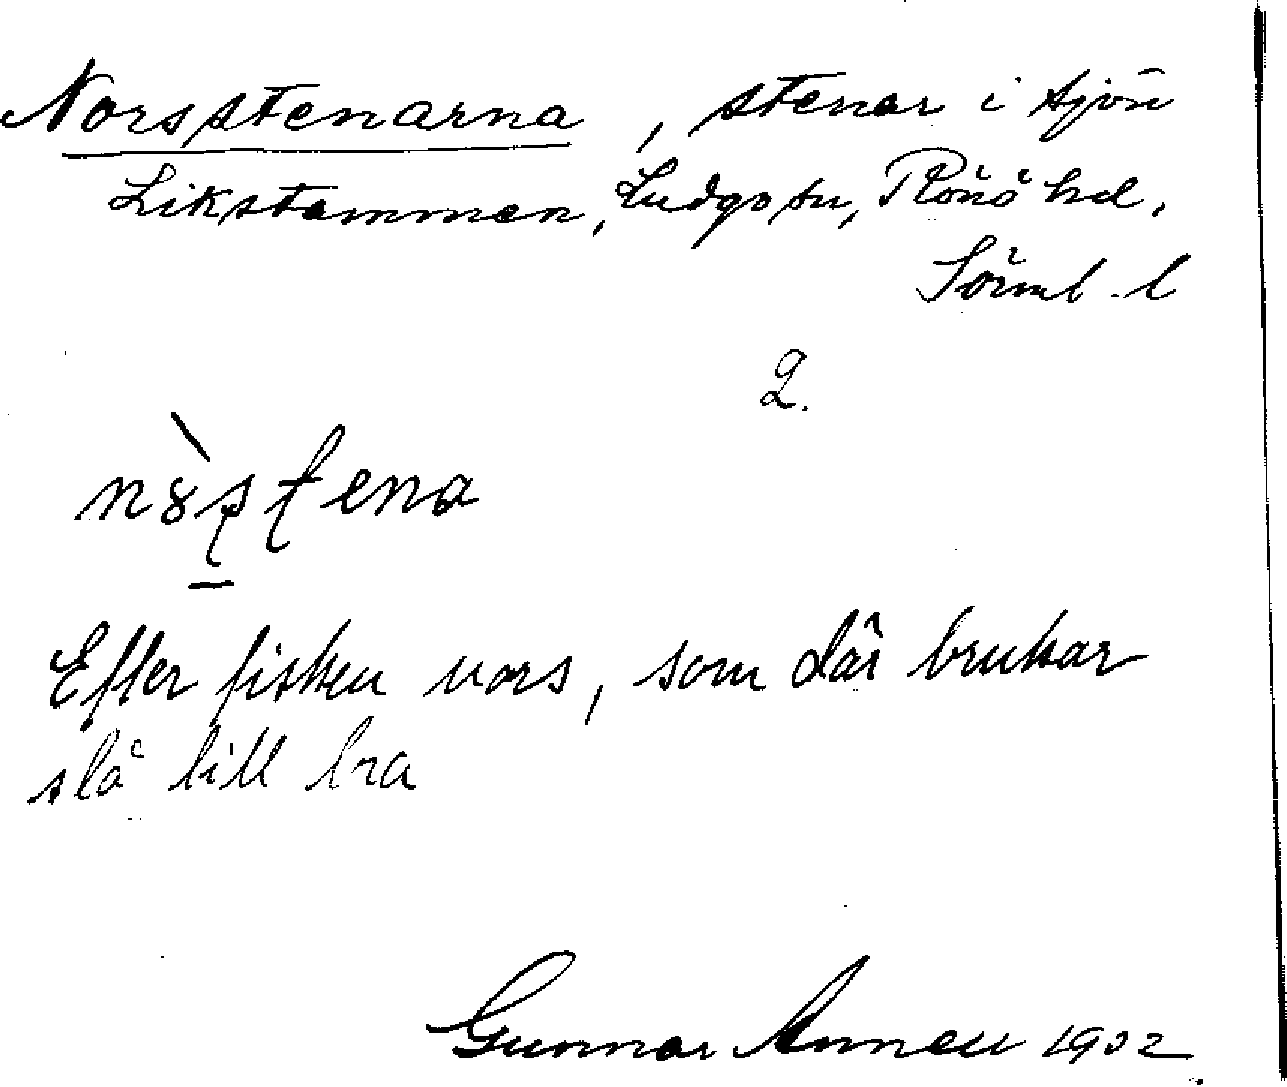 Norsstenarna, stenar i sjön
Likstammen, Ludgo sn, Rönö hd,
Sörml. l
2.
Efter fisken nors, som där brukar
slå till bra
Gunnar Annell 1932